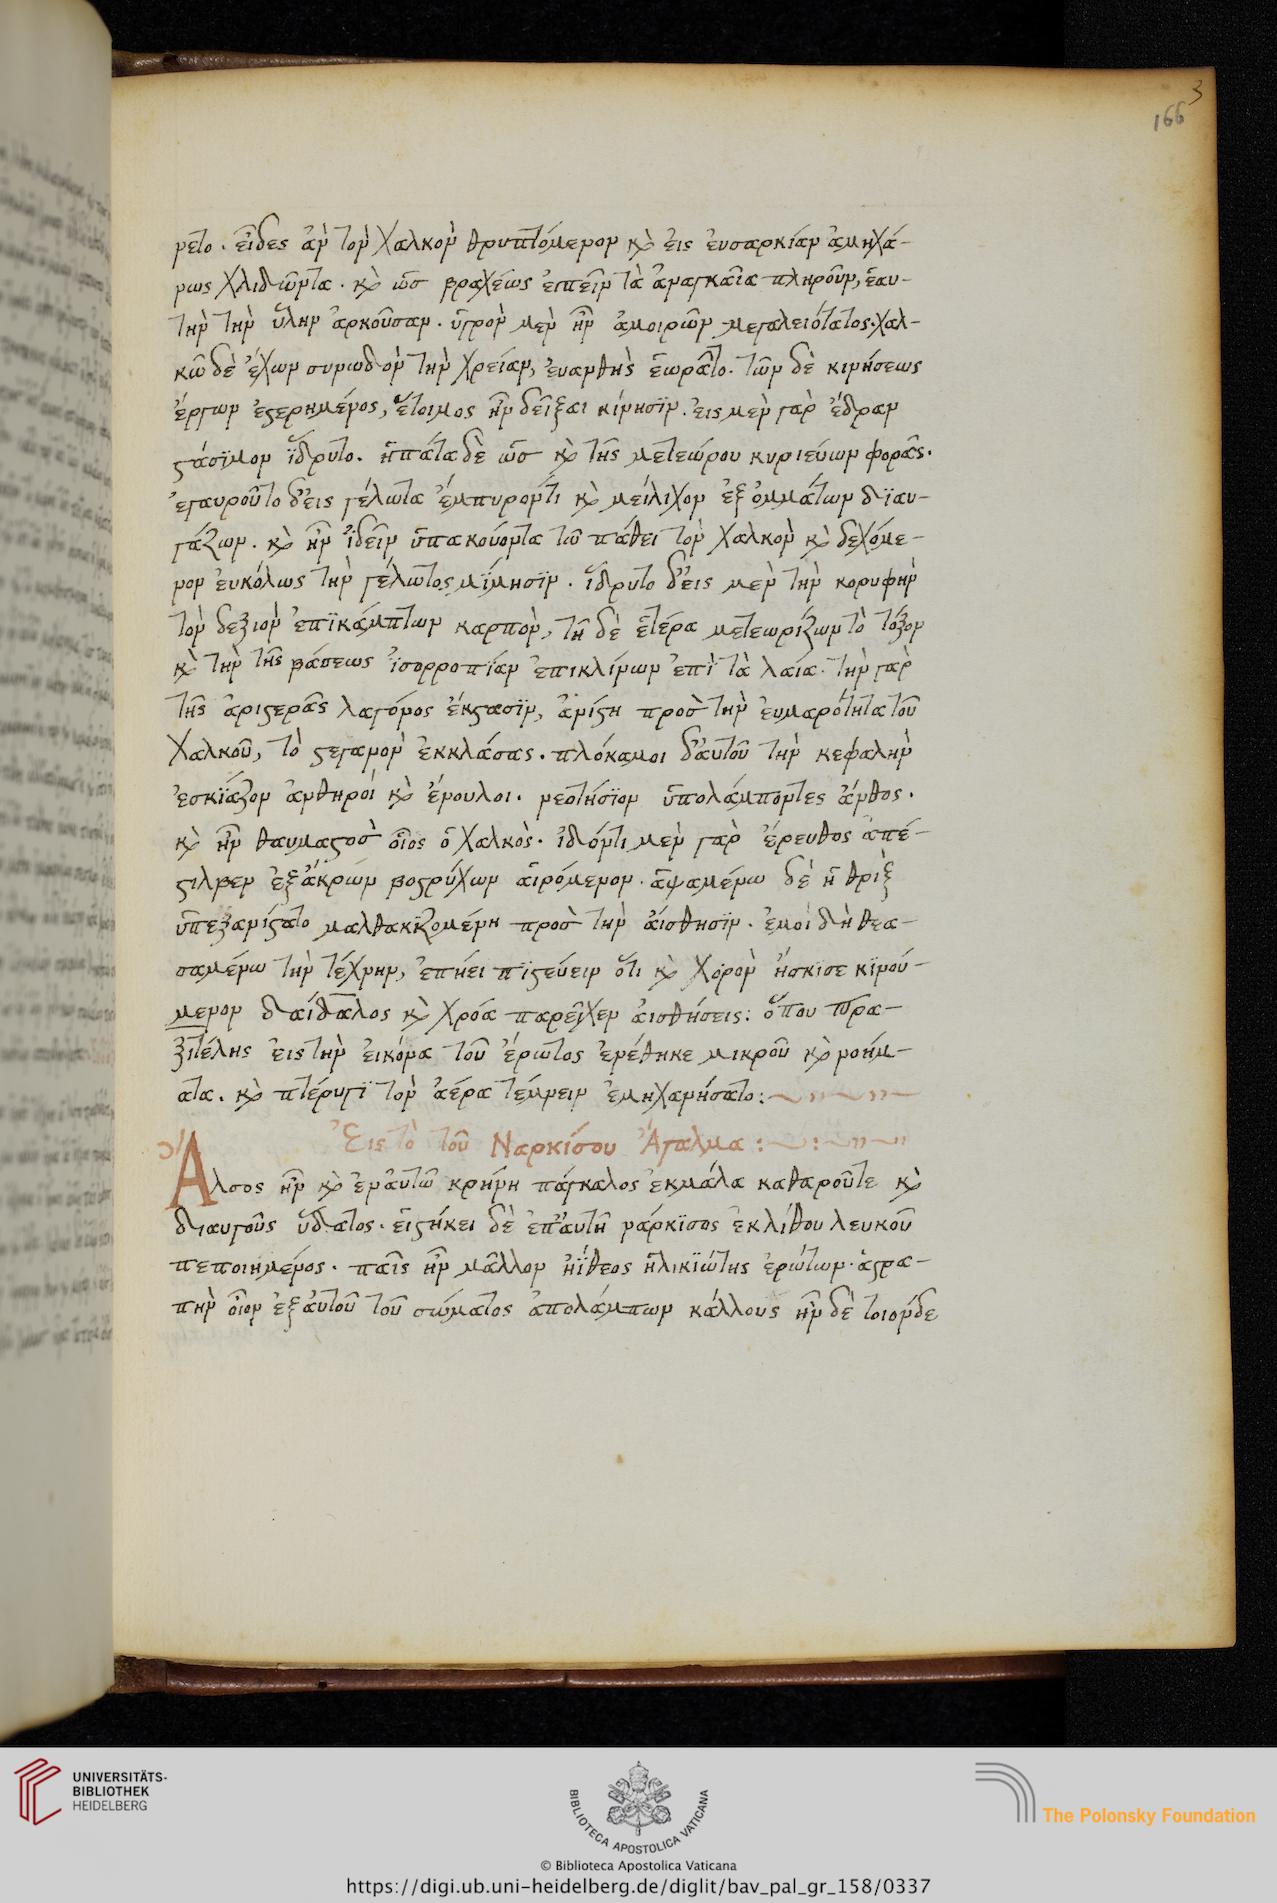 3
166
νετο. εἶδες ἂν τὸν χαλκὸν θρυπτόμενον κὶ εἰς ἐυσαρκίαν ἀμηχά-
νως χλιδῶντα. κὶ ὡς βραχέως ἐιπεῖν τὰ ἀναγκαῖα πληροῦν, ἑαυ-
τὴν τὴν ὕλην ἀρκοῦσαν. ὑγρὸν μὲν ἦν ἀμοιρῶν μεγαλειότατος. χαλ-
κῶ δὲ ἔχων συνωδὸν τὴν χρείαν, ἐυανθὴς ἑωρᾶτο. τῶν δὲ κινήσεως
ἔργων ἐςερημένος, ἕτοιμος ἦν δεῖξαι κίνησϊν. εἰς μὲν γὰρ ἕδραν
ςάσϊμον ἵδρυτο. ἠπάτα δὲ ὡς κὶ τῆς μετεώρου κυριεύων φορᾶς.
ἐγαυροῦτο δ'εις γέλωτα ἔμπυρόντι κὶ μείλιχον ἐξ ὀμμάτων δϊαυ-
γάζων. κὶ ἦν ἰδεῖν ὑπακούοντα τῶ πάθει τὸν χαλκὸν κὶ δεχόμε-
νον ἐυκόλως τὴν γέλωτος μϊμησϊν. ἵδρυτο δ'εις μὲν τὴν κορυφὴν
τὸν δεξιὸν ἐπϊκάμπτων καρπὸν, τῆ δὲ ἑτέρα μετεωρίζων τὸ τόξον
κὶ τὴν τῆς βάσεως ἰσορροπίαν ἐπικλίνων ἐπὶ τὰ λαιά. τὴν γὰρ
τῆς ἀριςερᾶς λαγόνος ἔκςασϊν, ἀνίςη πρὸς τὴν ἐυμαρότητα τοῦ
χαλκοῦ, τὸ ςεγανὸν ἐκκλάσας. πλόκαμοι δ'αυτοῦ τὴν κεφαλὴν
ἐσκϊαζον ἀνθηροί κὶ ἔνουλοι. νεοτήσϊον ὑπολάμποντες ἄνθος.
κὶ ἦν θαυμαςὸς οἷος ὁ χαλκὸς. ἰδόντι μὲν γὰρ ἔρευθος ἀπέ-
ςιλβεν ἐξ ἄκρων βοςρύχων αἰρόμενον. ἁψαμένω δὲ ἡ θρὶξ
ὑπεξανίςατο μαλθακκϊζομένη πρὸς τὴν αἴσθησϊν. ἐμοὶ δὴ θεα-
σαμένω τὴν τέχνην, ἐπήει πϊςεύειν ὅτι κὶ χορὸν ἤσκισε κϊνού-
μενον δαίδαλος κὶ χροά παρεῖχεν ἀισθήσεις: ὅπου πρα-
ξιτέλης εἰς τὴν ἐικόνα τοῦ ἔρωτος ἐνέθηκε μικροῦ κὶ νοήμ-
ατα. κὶ πτέρυγϊ τὸν ἀέρα τέμνειν ἐμηχανήσατο:
Ἐις τὸ τοῦ Ναρκίσου Ἄγαλμα:
Ἄλσος ἦν κὶ ἐν ἀυτῶ κρήνη πάγκαλος ἐκμάλα καθαροῦ τε κὶ
διαυγοῦς ὕδατος. εἱςήκει δὲ ἐπ'ἀυτῆ νάρκϊσος ἐκ λίθου λευκοῦ
πεποιημένος. παῖς ἦν μᾶλλον ἠΐθεος ἡλικϊώτης ἐρώτων. ἀςρα-
πὴν οἷον ἐξ ἀυτοῦ τοῦ σώματος ἀπολάμπων κάλλους ἦν δὲ τοιόνδε
UNIVERSITÄTS-
BIBLIOTHEK
HEIDELBERG
BIBLIOTECA APOSTOLICA VATICANA
The Polonsky Foundation
© Biblioteca Apostolica Vaticana
https://digi.ub.uni-heidelberg.de/diglit/bav_pal_gr_158/0337